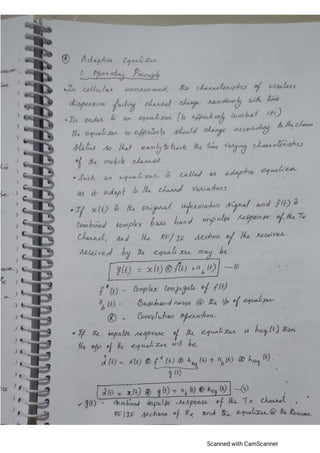 ② Adaptive Equalizer
1. Operating Principle
• In cellular environment, the characteristics of wireless
dispersive fading channel change randomly with time.
• In order to an equalizer [to effectively combat ISI]
the equalizer co efficients should change according to the channel
status so that early to track the time varying characteristics
of the mobile channel.
• Such an equalizer is called as adaptive equalizer
as it adapt to the channel variations.
• If x(t) is the original information signal and f(t) is
combined complex base band impulse response of the Tx
channel, and the RF/IF section of the receiver
received by the equalizer may be
y(t) = x(t) ⊗ f*(t) + n_b(t) —(1)
f*(t) - Complex Conjugate of f(t)
n_b(t) - Baseband noise @ the i/p of equalizer
⊗ - Convolution operation.
• If the impulse response of the equalizer is heq(t) then
the o/p of the equalizer will be
d̂(t) = x(t) ⊗ f*(t) ⊗ heq(t) + n_b(t) ⊗ heq(t).
g(t)
d̂(t) = x(t) ⊗ g(t) + n_b(t) ⊗ heq(t) —(2)
g(t) - Combined impulse response of the Tx channel,
RF/IF sections of Rx and the equalizer @ the Receiver
Scanned with CamScanner